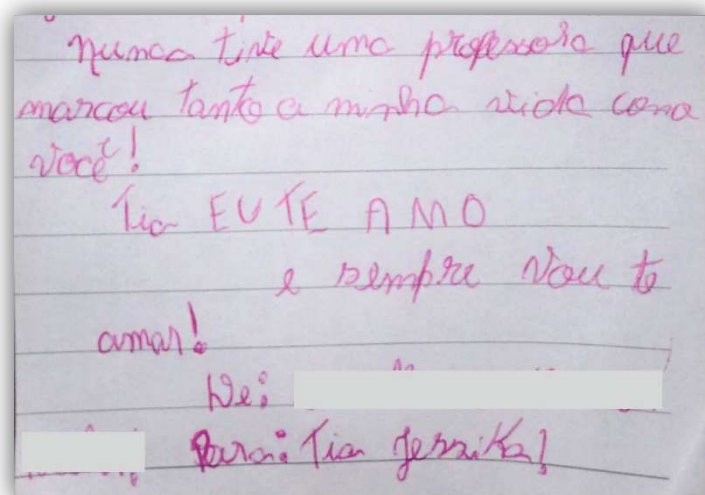 nunca tive uma professora que
marcou tanto a minha vida como
você!
Tia EU TE AMO
e sempre vou te
amar!
De:
Para: Tia Jessika!